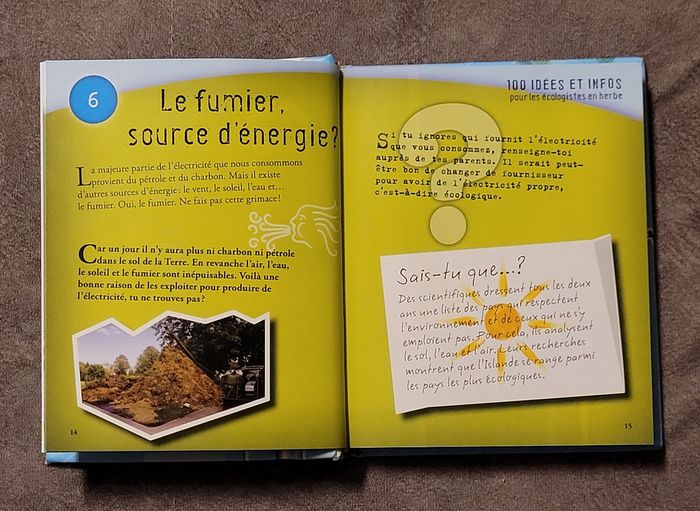 6
Le fumier,
source d'énergie?
La majeure partie de l'électricité que nous consommons
provient du pétrole et du charbon. Mais il existe
d'autres sources d'énergie : le vent, le soleil, l'eau et...
le fumier. Oui, le fumier. Ne fais pas cette grimace!
Car un jour il n'y aura plus ni charbon ni pétrole
dans le sol de la Terre. En revanche l'air, l'eau,
le soleil et le fumier sont inépuisables. Voilà une
bonne raison de les exploiter pour produire de
l'électricité, tu ne trouves pas?
14
100 IDÉES ET INFOS
pour les écologistes en herbe
Si tu ignores qui fournit l'électricité
que vous consommez, renseigne-toi
auprès de tes parents. Il serait peut-
être bon de changer de fournisseur
pour avoir de l'électricité propre,
c'est-à-dire écologique.
Sais-tu que...?
Des scientifiques dressent tous les deux
ans une liste des pays qui respectent
l'environnement et de ceux qui ne s'y
emploient pas. Pour cela, ils analysent
le sol, l'eau et l'air. Leurs recherches
montrent que l'Islande se range parmi
les pays les plus écologiques.
15